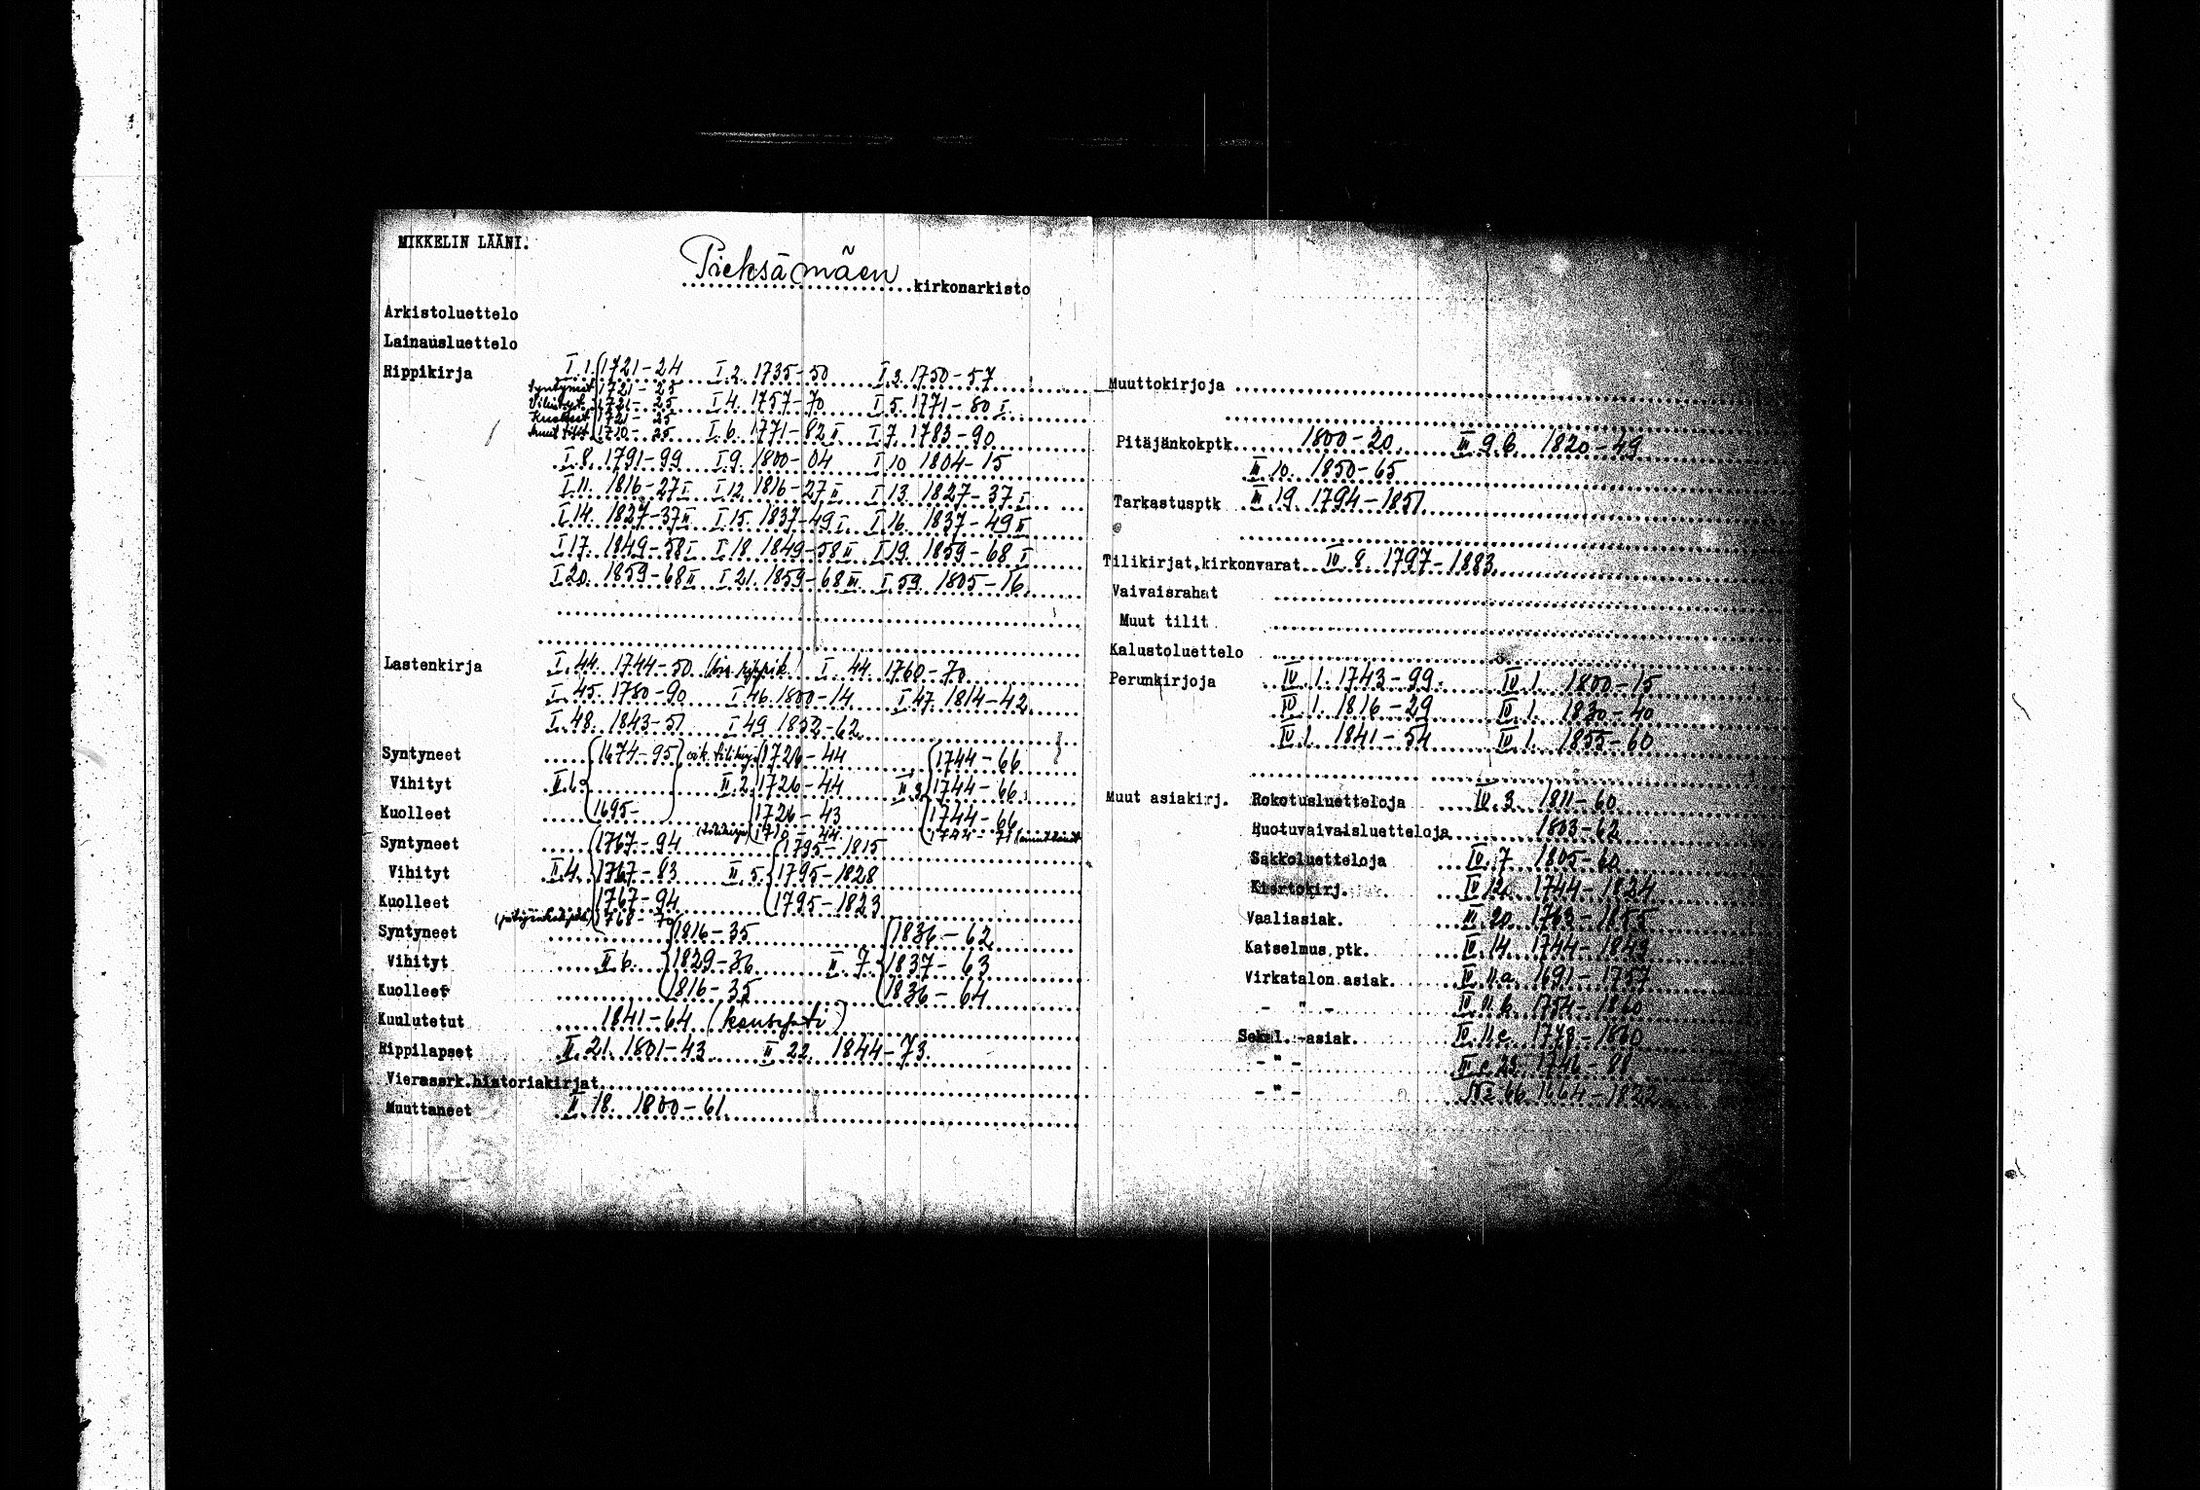 MIKKELIN LÄÄNI.
Pieksämäen kirkonarkisto
Arkistoluettelo
Lainausluettelo
Rippikirja I.1. 1721-24 I.2. 1735-50 I.3. 1750-57
Syntyneet 1721-25
Vihityt 1721-25 I.4. 1757-70 I.5. 1771-80 I
Kuolleet 1721-25
Muut tilit 1710-25 I.6. 1771-82 I I.7. 1783-90
I.8. 1791-99 I.9. 1800-04 I.10 1804-15
I.11. 1816-27 I I.12. 1816-27 II I.13. 1827-37 I
I.14. 1827-37 II I.15. 1837-49 I I.16. 1837-49 II
I.17. 1849-58 I I.18. 1849-58 II I.19. 1859-68 I
I.20. 1859-68 II I.21. 1859-68 III I.59. 1805-16
Lastenkirja I.44. 1744-50 I.44. 1760-70
I.45. 1780-90 I.46. 1800-14 I.47. 1814-42
I.48. 1843-51 I.49 1852-62
Syntyneet 1674-95 1726-44 1744-66
Vihityt II.1. II.2. 1726-44 II.3. 1744-66
Kuolleet 1695- 1726-43 1744-66
Syntyneet 1767-94 1795-1815
Vihityt II.4. 1767-83 II.5. 1795-1828
Kuolleet 1767-94 1795-1823
1768-70
Syntyneet 1816-35 1836-62
Vihityt II.6. 1829-36 II.7. 1837-63
Kuolleet 1816-35 1836-64
Kuulutetut 1841-64 (konsepti)
Rippilapset II.21. 1801-43 II.22. 1844-73
Vierassrk.historiakirjat
Muuttaneet II.18. 1800-61
Muuttokirjoja
Pitäjänkokptk. 1800-20. III.9.b. 1820-49
III.10. 1850-65
Tarkastusptk III.19. 1794-1851
Tilikirjat,kirkonvarat IV.8. 1797-1883
Vaivaisrahat
Muut tilit
Kalustoluettelo
Perunkirjoja IV.1. 1743-99 IV.1. 1800-15
IV.1. 1816-29 IV.1. 1830-40
IV.1. 1841-54 IV.1. 1855-60
Muut asiakirj. Rokotusluetteloja IV.3. 1811-60
Ruotuvaivaisluetteloja 1803-62
Sakkoluetteloja IV.7. 1805-60
Kiertokirj. IV.12. 1744-1824
Vaaliasiak. III.20. 1763-1855
Katselmus.ptk. IV.14. 1744-1843
Virkatalon asiak. IV.11.a. 1691-1757
- " - IV.11.b. 1754-1860
Sekal.-asiak. IV.11.c. 1778-1860
- " -
- " -